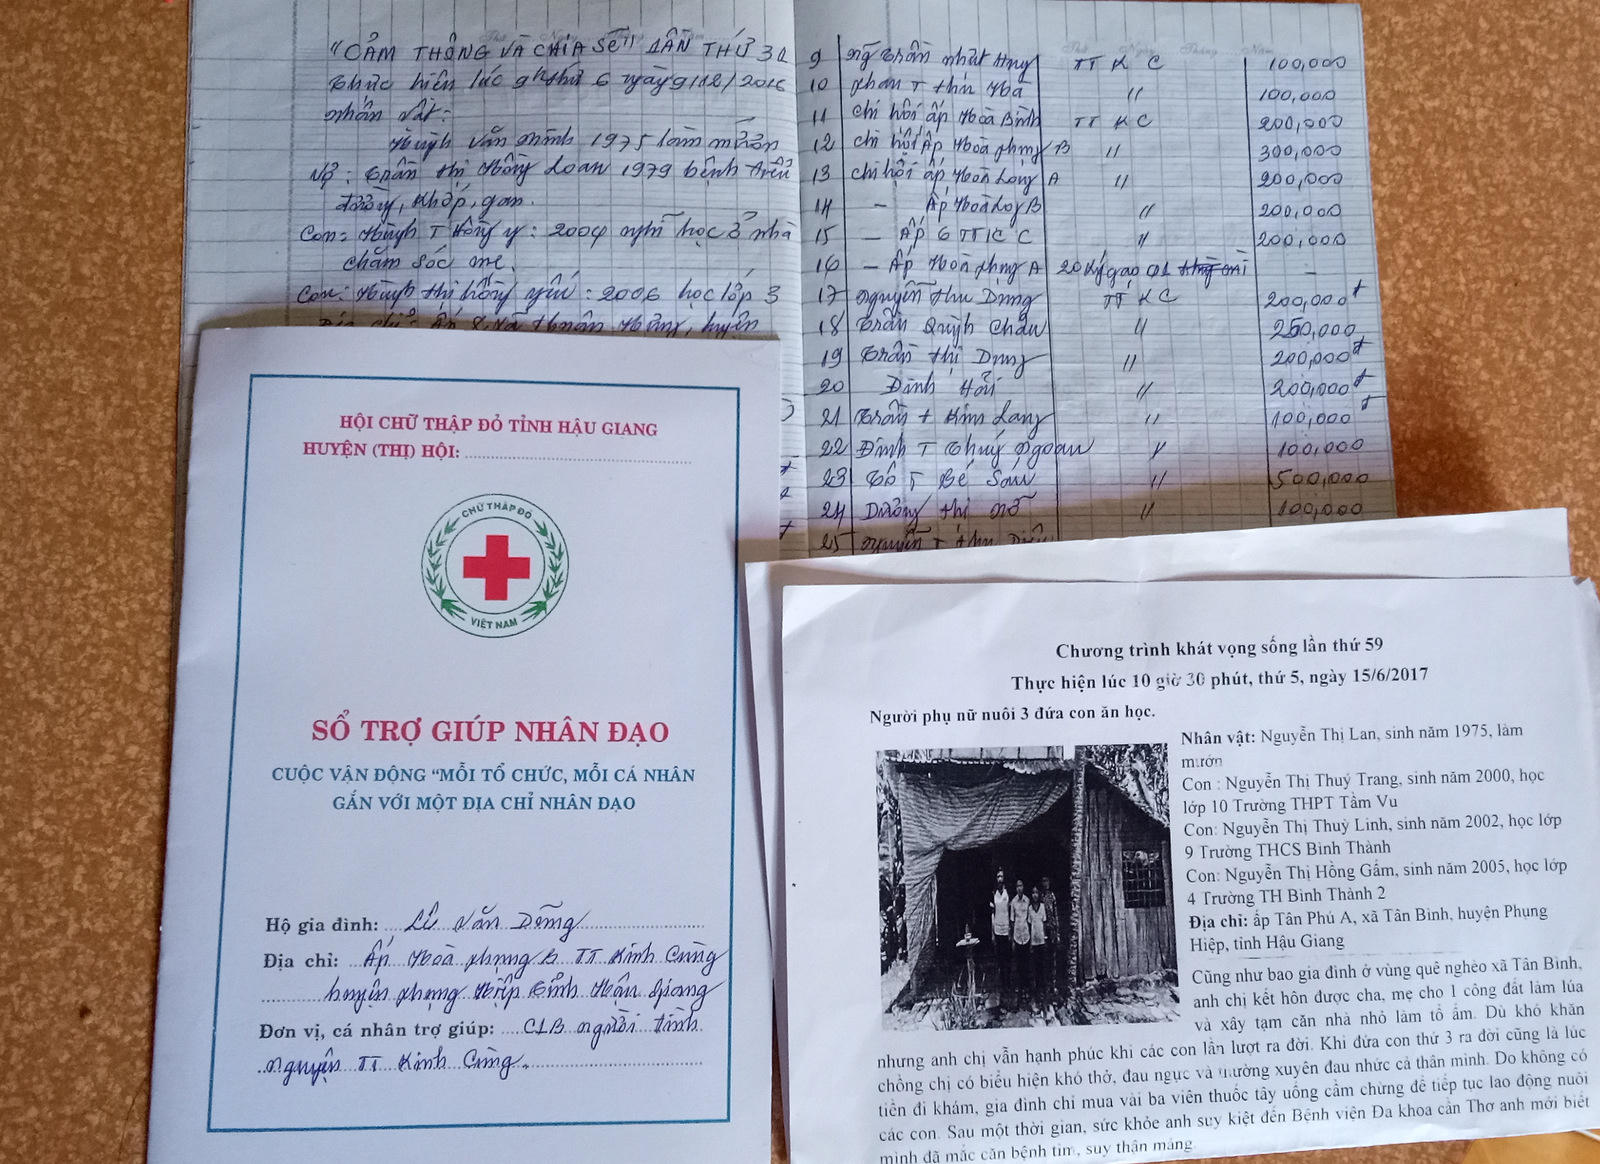 "CẢM THÔNG VÀ CHIA SẺ" LẦN THỨ 30
thực hiện lúc 9h thứ 6 ngày 9/12/2016
nhân vật:
Huỳnh Văn Minh 1975 làm mướn
Vợ: Trần Thị Hồng Loan 1979 bệnh tiểu
đường, Khớp, gan.
Con: Huỳnh T Hồng Y: 2004 nghĩ học ở nhà
chăm sóc mẹ.
Con: Huỳnh thị hồng yến: 2006 học lớp 3
9 Trần nhựt TT K C 100,000
10 phan T thu Hà " 100,000
11 chi hội ấp Hoà Bình TT K C 200,000
12 chi hội Ấp Hoà phụng B " 300,000
13 chi hội ấp Hoà Long A " 200,000
14 – Ấp Hoà Log B " 200,000
15 – Ấp 6 TT K C " 200,000
16 – Ấp Hoà phụng A 20 ký gạo –
17 nguyễn thu Dung TT KC 200,000đ
18 Trần Quỳnh Châu " 250,000
19 Trần thị Dung " 200,000đ
20 Đinh Hải " 200,000đ
21 Trần T Kim Lang " 100,000đ
22 Đinh T Thuý Ngoan " 100,000
23 T Bé Sáu " 500,000
24 Dương thị nở " 100,000
25 nguyễn T thu
HỘI CHỮ THẬP ĐỎ TỈNH HẬU GIANG
HUYỆN (THỊ) HỘI:
CHỮ THẬP ĐỎ
VIỆT NAM
SỔ TRỢ GIÚP NHÂN ĐẠO
CUỘC VẬN ĐỘNG "MỖI TỔ CHỨC, MỖI CÁ NHÂN
GẮN VỚI MỘT ĐỊA CHỈ NHÂN ĐẠO
Hộ gia đình: Lê Văn Dũng
Địa chỉ: Ấp Hoà phụng B TT Kinh Cùng
huyện phụng Hiệp tỉnh Hậu Giang
Đơn vị, cá nhân trợ giúp: CLB người tình
nguyện TT Kinh Cùng.
Chương trình khát vọng sống lần thứ 59
Thực hiện lúc 10 giờ 30 phút, thứ 5, ngày 15/6/2017
Người phụ nữ nuôi 3 đứa con ăn học.
Nhân vật: Nguyễn Thị Lan, sinh năm 1975, làm
mướn
Con : Nguyễn Thị Thuý Trang, sinh năm 2000, học
lớp 10 Trường THPT Tầm Vu
Con: Nguyễn Thị Thuỳ Linh, sinh năm 2002, học lớp
9 Trường THCS Bình Thành
Con: Nguyễn Thị Hồng Gấm, sinh năm 2005, học lớp
4 Trường TH Bình Thành 2
Địa chỉ: ấp Tân Phú A, xã Tân Bình, huyện Phụng
Hiệp, tỉnh Hậu Giang
Cũng như bao gia đình ở vùng quê nghèo xã Tân Bình,
anh chị kết hôn được cha, mẹ cho 1 công đất làm lúa
và xây tạm căn nhà nhỏ làm tổ ấm. Dù khó khăn
nhưng anh chị vẫn hạnh phúc khi các con lần lượt ra đời. Khi đứa con thứ 3 ra đời cũng là lúc
chồng chị có biểu hiện khó thở, đau ngực và thường xuyên đau nhức cả thân mình. Do không có
tiền đi khám, gia đình chỉ mua vài ba viên thuốc tây uống cầm chừng để tiếp tục lao động nuôi
các con. Sau một thời gian, sức khỏe anh suy kiệt đến Bệnh viện Đa khoa cần Thơ anh mới biết
mình đã mắc căn bệnh tim, suy thận mãng.